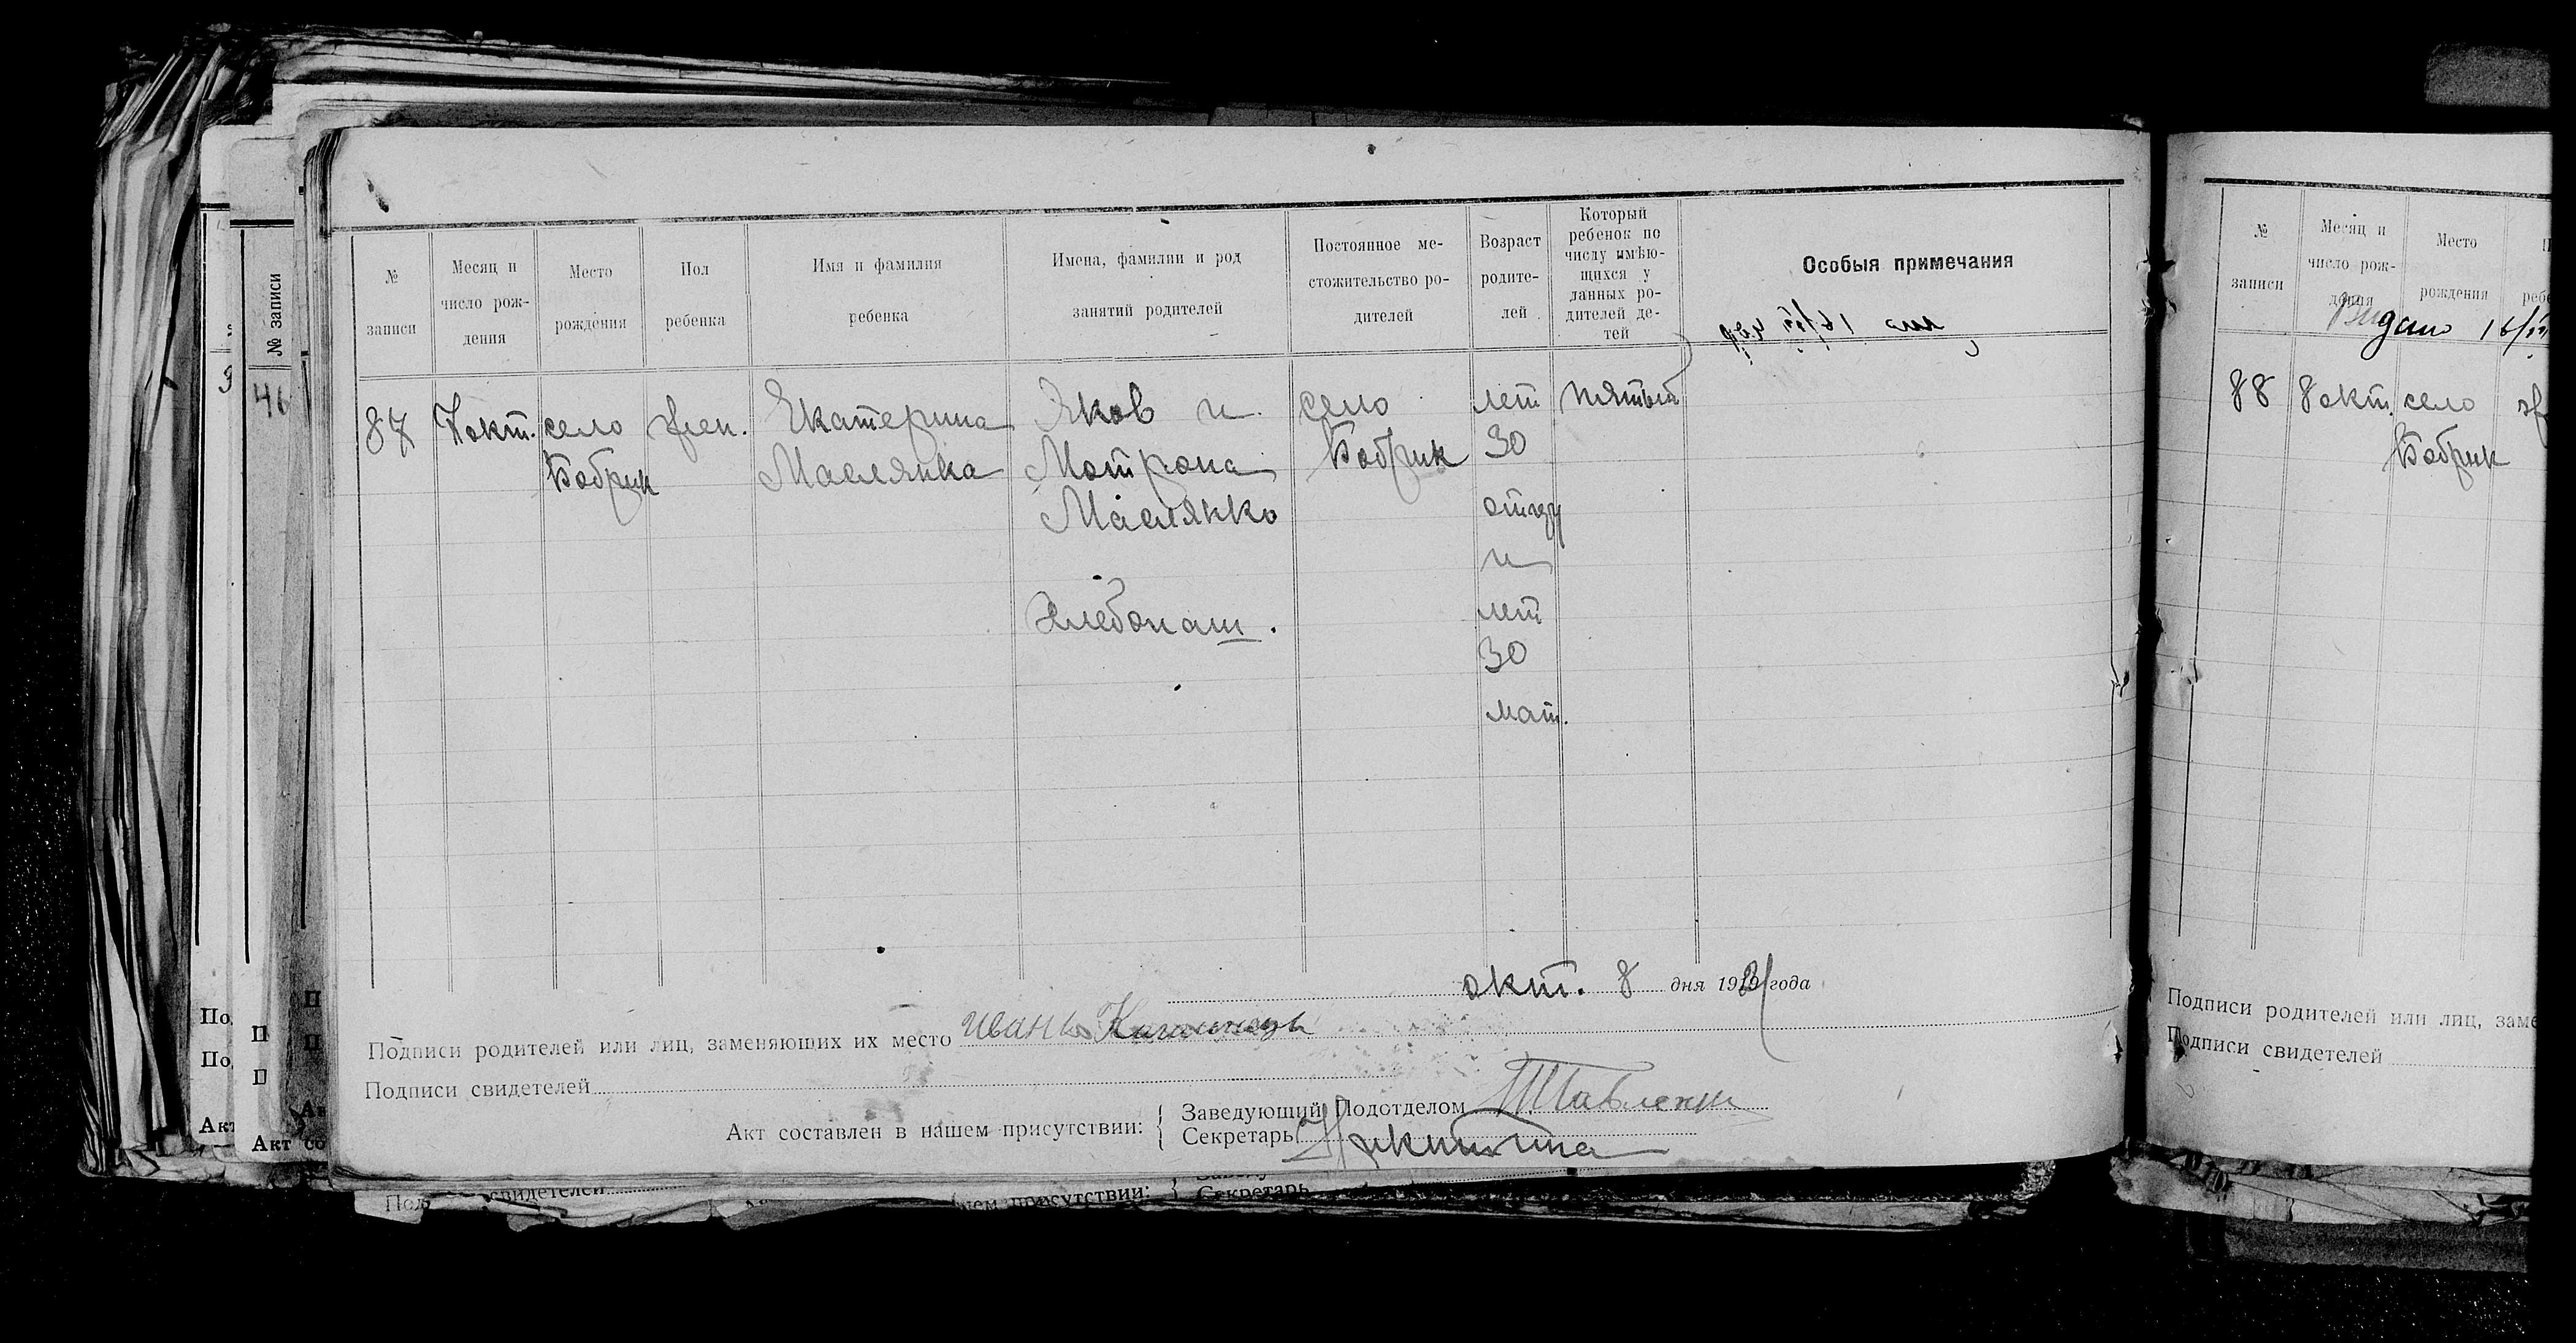 № записи
Месяц и число рождения
Место рождения
Пол ребенка
Имя и фамилия ребенка
Имена, фамилии и род занятий родителей
Постоянное местожительство родителей
Возраст родителей
Который ребенок по числу имѣющихся у данных родителей детей
Особыя примечания
87
7 окт.
село
Бобрик
жен.
Екатерина
Маслянка
Яков и
Мотрона
Маслянко
Хлебопаш.
село
Бобрик
лет
30
отцу
и
лет
30
мат.
пятый
окт. 8 дня 1921 года
Подписи родителей или лиц, заменяющих их место Иванъ
Подписи свидетелей
Акт составлен в нашем присутствии:
Заведующий Подотделом
Секретарь
№ записи
46
№ записи
Месяц и число рождения
Место рождения
88
8 окт.
село
Бобрик
Подписи родителей или лиц, заме
Подписи свидетелей
Акт со
свидетелей
присутствии:
Секретарь